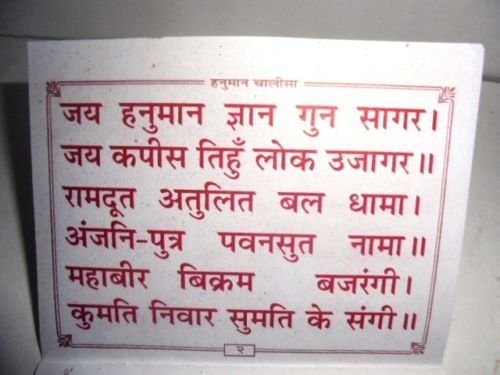 हनुमान चालीसा
जय हनुमान ज्ञान गुन सागर।
जय कपीस तिहुँ लोक उजागर॥
रामदूत अतुलित बल धामा।
अंजनि-पुत्र पवनसुत नामा॥
महाबीर बिक्रम बजरंगी।
कुमति निवार सुमति के संगी॥
२